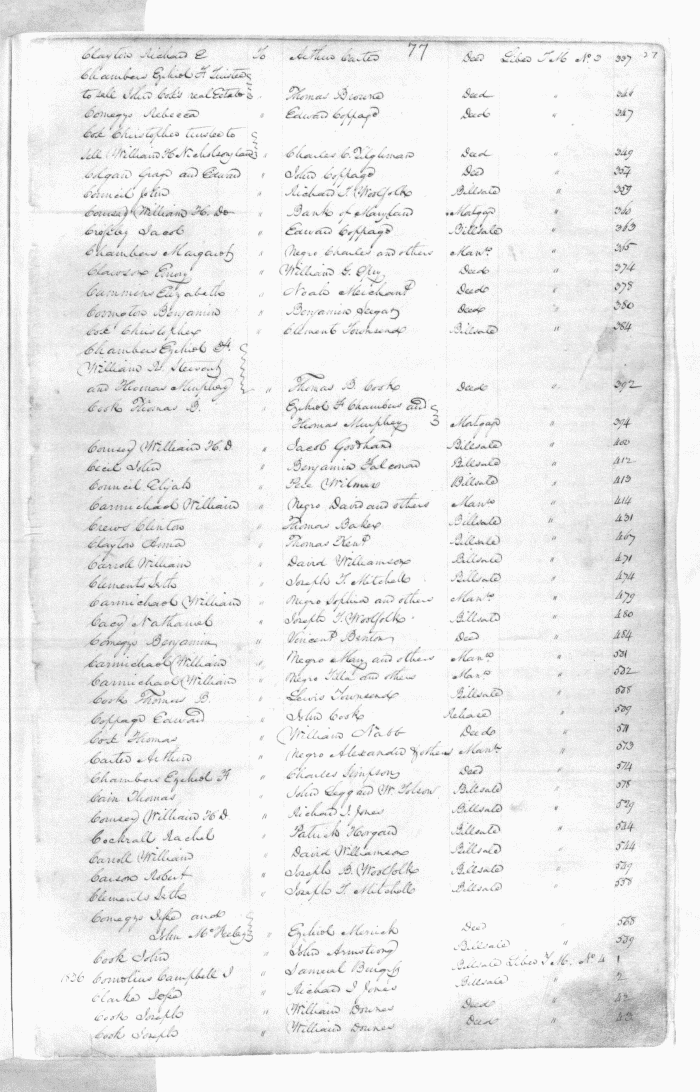 77
Clayton Richard E To Arthur Carter Deed Liber T M No 3 337
Chambers Ezekiel F Trustee
to sell John Cook's real Estate " Thomas Browne Deed " 346
Comegys Rebecca " Edward Coppage Deed " 347
Cox Christopher trustee to
sell William H Nicholson land " Charles C. Tilghman Deed " 349
Colgan Grace and Edward " John Coppage Deed " 354
Council John " Richard T. Woolfolk Billsale " 359
Coursey William H. De " Bank of Maryland Mortgage " 360
Jacob " Edward Coppage Billsale " 363
Chambers Margaret " Negro Charles and others Manu. " 365
Clawsox Emory " William G. Deed " 374
Cummens Elizabeth " Noah Merchant Deed " 378
Connoton Benjamin " Benjamin Deed " 380
Cox Christopher " Clement Townsend Billsale " 384
Chambers Ezekiel F.
William H.
and Thomas Murphey " Thomas B. Cook Deed " 392
Cook Thomas B. " Ezekiel F Chambers and
Thomas Murphey Mortgage " 394
Coursey William H. D " Jacob Goodhand Billsale " 402
Cecil John " Benjamin Falconar Billsale " 412
Council Elijah " Pere Wilmer Billsale " 413
Carmichael William " Negro David and others Manu. " 414
Crews Clinton " Thomas Baker Billsale " 431
Clayton Anna " Thomas Kent Billsale " 467
Carroll William " David Williamson Billsale " 471
Clements Seth " Joseph T. Mitchell Billsale " 474
Carmichael William " Negro Sophia and others Manu. " 479
Cacy Nathaniel " Joseph T. Woolfolk Billsale " 480
Comegys Benjamin " Vincent Benton Deed " 484
Carmichael William " Negro Mary and others Manu. " 531
Carmichael William " Negro Tilla and others Manu. " 532
Cook Thomas B. " Lewis Townsend Billsale " 538
Coppage Edward " John Cook Release " 509
Cox Thomas " William Nabb Deed " 511
Carter Arthur " Negro Alexander & others Manu. " 573
Chambers Ezekiel F " Charles Simpson Deed " 574
Cain Thomas " John Seggard W. Tolson Billsale " 578
Coursey William H D " Richard I. Jones Billsale " 529
Cockrall Rachel " Patrick Horgan Billsale " 544
Carroll William " David Williamson Billsale " 544
Carson Robert " Joseph B. Woolfolk Billsale " 539
Clements Seth " Joseph T. Mitchell Billsale " 558
Comegys Jesse and
John McFeeley " Ezekiel Merrick Deed " 568
Cook John " John Armstrong Billsale " 589
1836 Cornelius Campbell I " Samuel Billsale Liber T. M. No 4 1
Clarke Jesse " Richard I Jones Billsale " 2
Cook Joseph " William Downes Deed " 42
Cook Joseph " William Downes Deed " 43